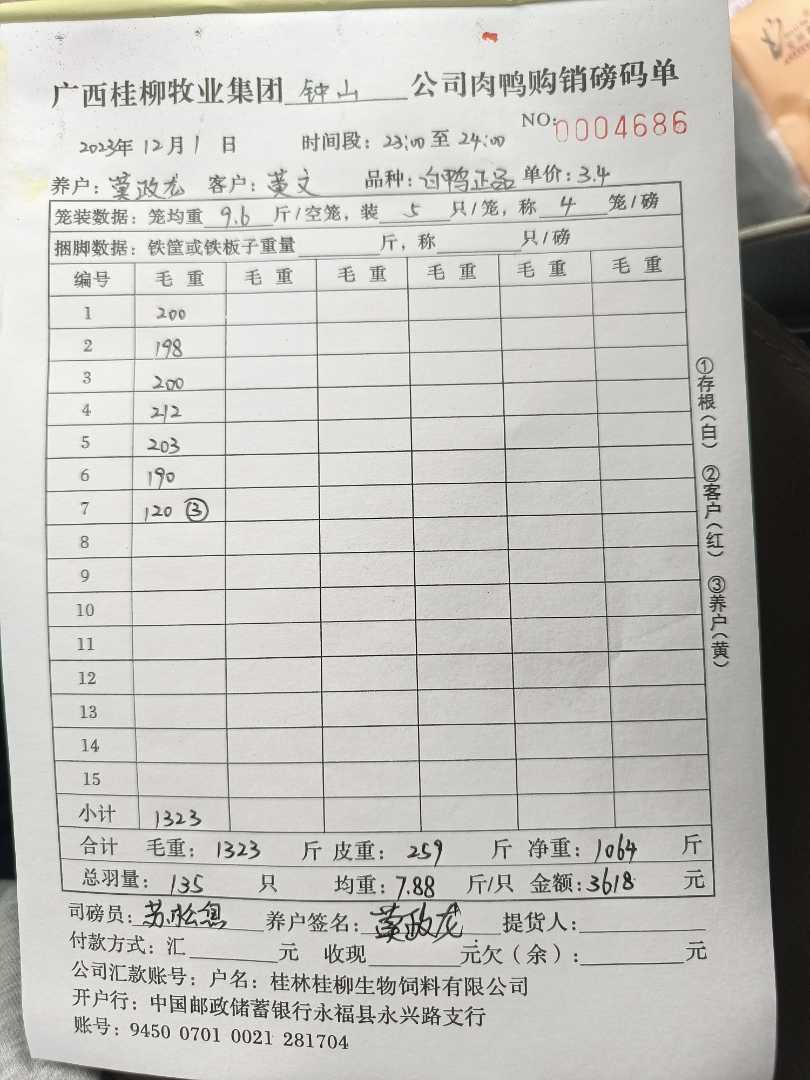 广西桂柳牧业集团 钟山 公司肉鸭购销磅码单
NO: 0004686
2023年 12月 1 日 时间段: 23:00 至 24:00
养户: 莫政龙 客户: 黄文 品种: 白鸭正品 单价: 3.4
笼装数据: 笼均重 9.6 斤/空笼, 装 5 只/笼, 称 4 笼/磅
捆脚数据: 铁筐或铁板子重量 斤, 称 只/磅
编号 毛重 毛重 毛重 毛重 毛重 毛重
1 200
2 198
3 200
4 212
5 203
6 190
7 120 ③
8
9
10
11
12
13
14
15
小计 1323
合计 毛重: 1323 斤 皮重: 259 斤 净重: 1064 斤
总羽量: 135 只 均重: 7.88 斤/只 金额: 3618 元
司磅员: 养户签名: 莫政龙 提货人:
付款方式: 汇 元 收现 元欠(余): 元
公司汇款账号: 户名: 桂林桂柳生物饲料有限公司
开户行: 中国邮政储蓄银行永福县永兴路支行
账号: 9450 0701 0021 281704
①存根(白) ②客户(红) ③养户(黄)